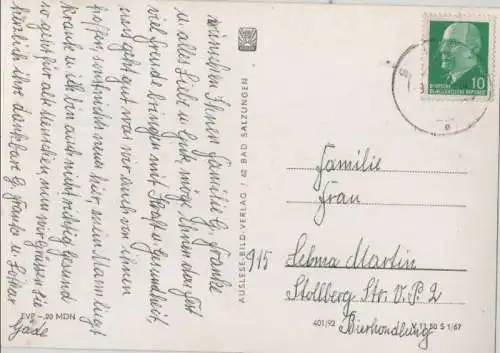 wünschen Ihnen Familie G. Franke
u. alles Liebe u. Gute, möge Ihnen das Fest
viel Freude bringen mit Kraft u. Gesundheit,
uns geht gut was wir auch von Ihnen
hoffen, sonst nichts neues hier, mein Mann liegt
krank u. ich bin auch nicht richtig gesund
so geht für alte nun wir grüssen sie
herzlich ihre dankbare G. Franke u. Tochter
Gäde
EVP -.20 MDN
AUSLESE-BILD-VERLAG / 62 BAD SALZUNGEN
10
DEUTSCHE
DEMOKRATISCHE REPUBLIK
Familie
Frau
915 Selma Martin
Stollberg Str. V.P. 2
Bierhandlung
401/92 V 11 50 S 1/67